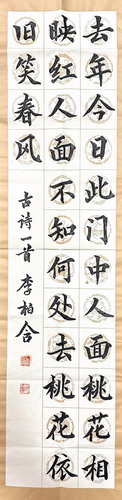 去年今日此门中人面桃花相
映红人面不知何处去桃花依
旧笑春风
古诗一首 李柏